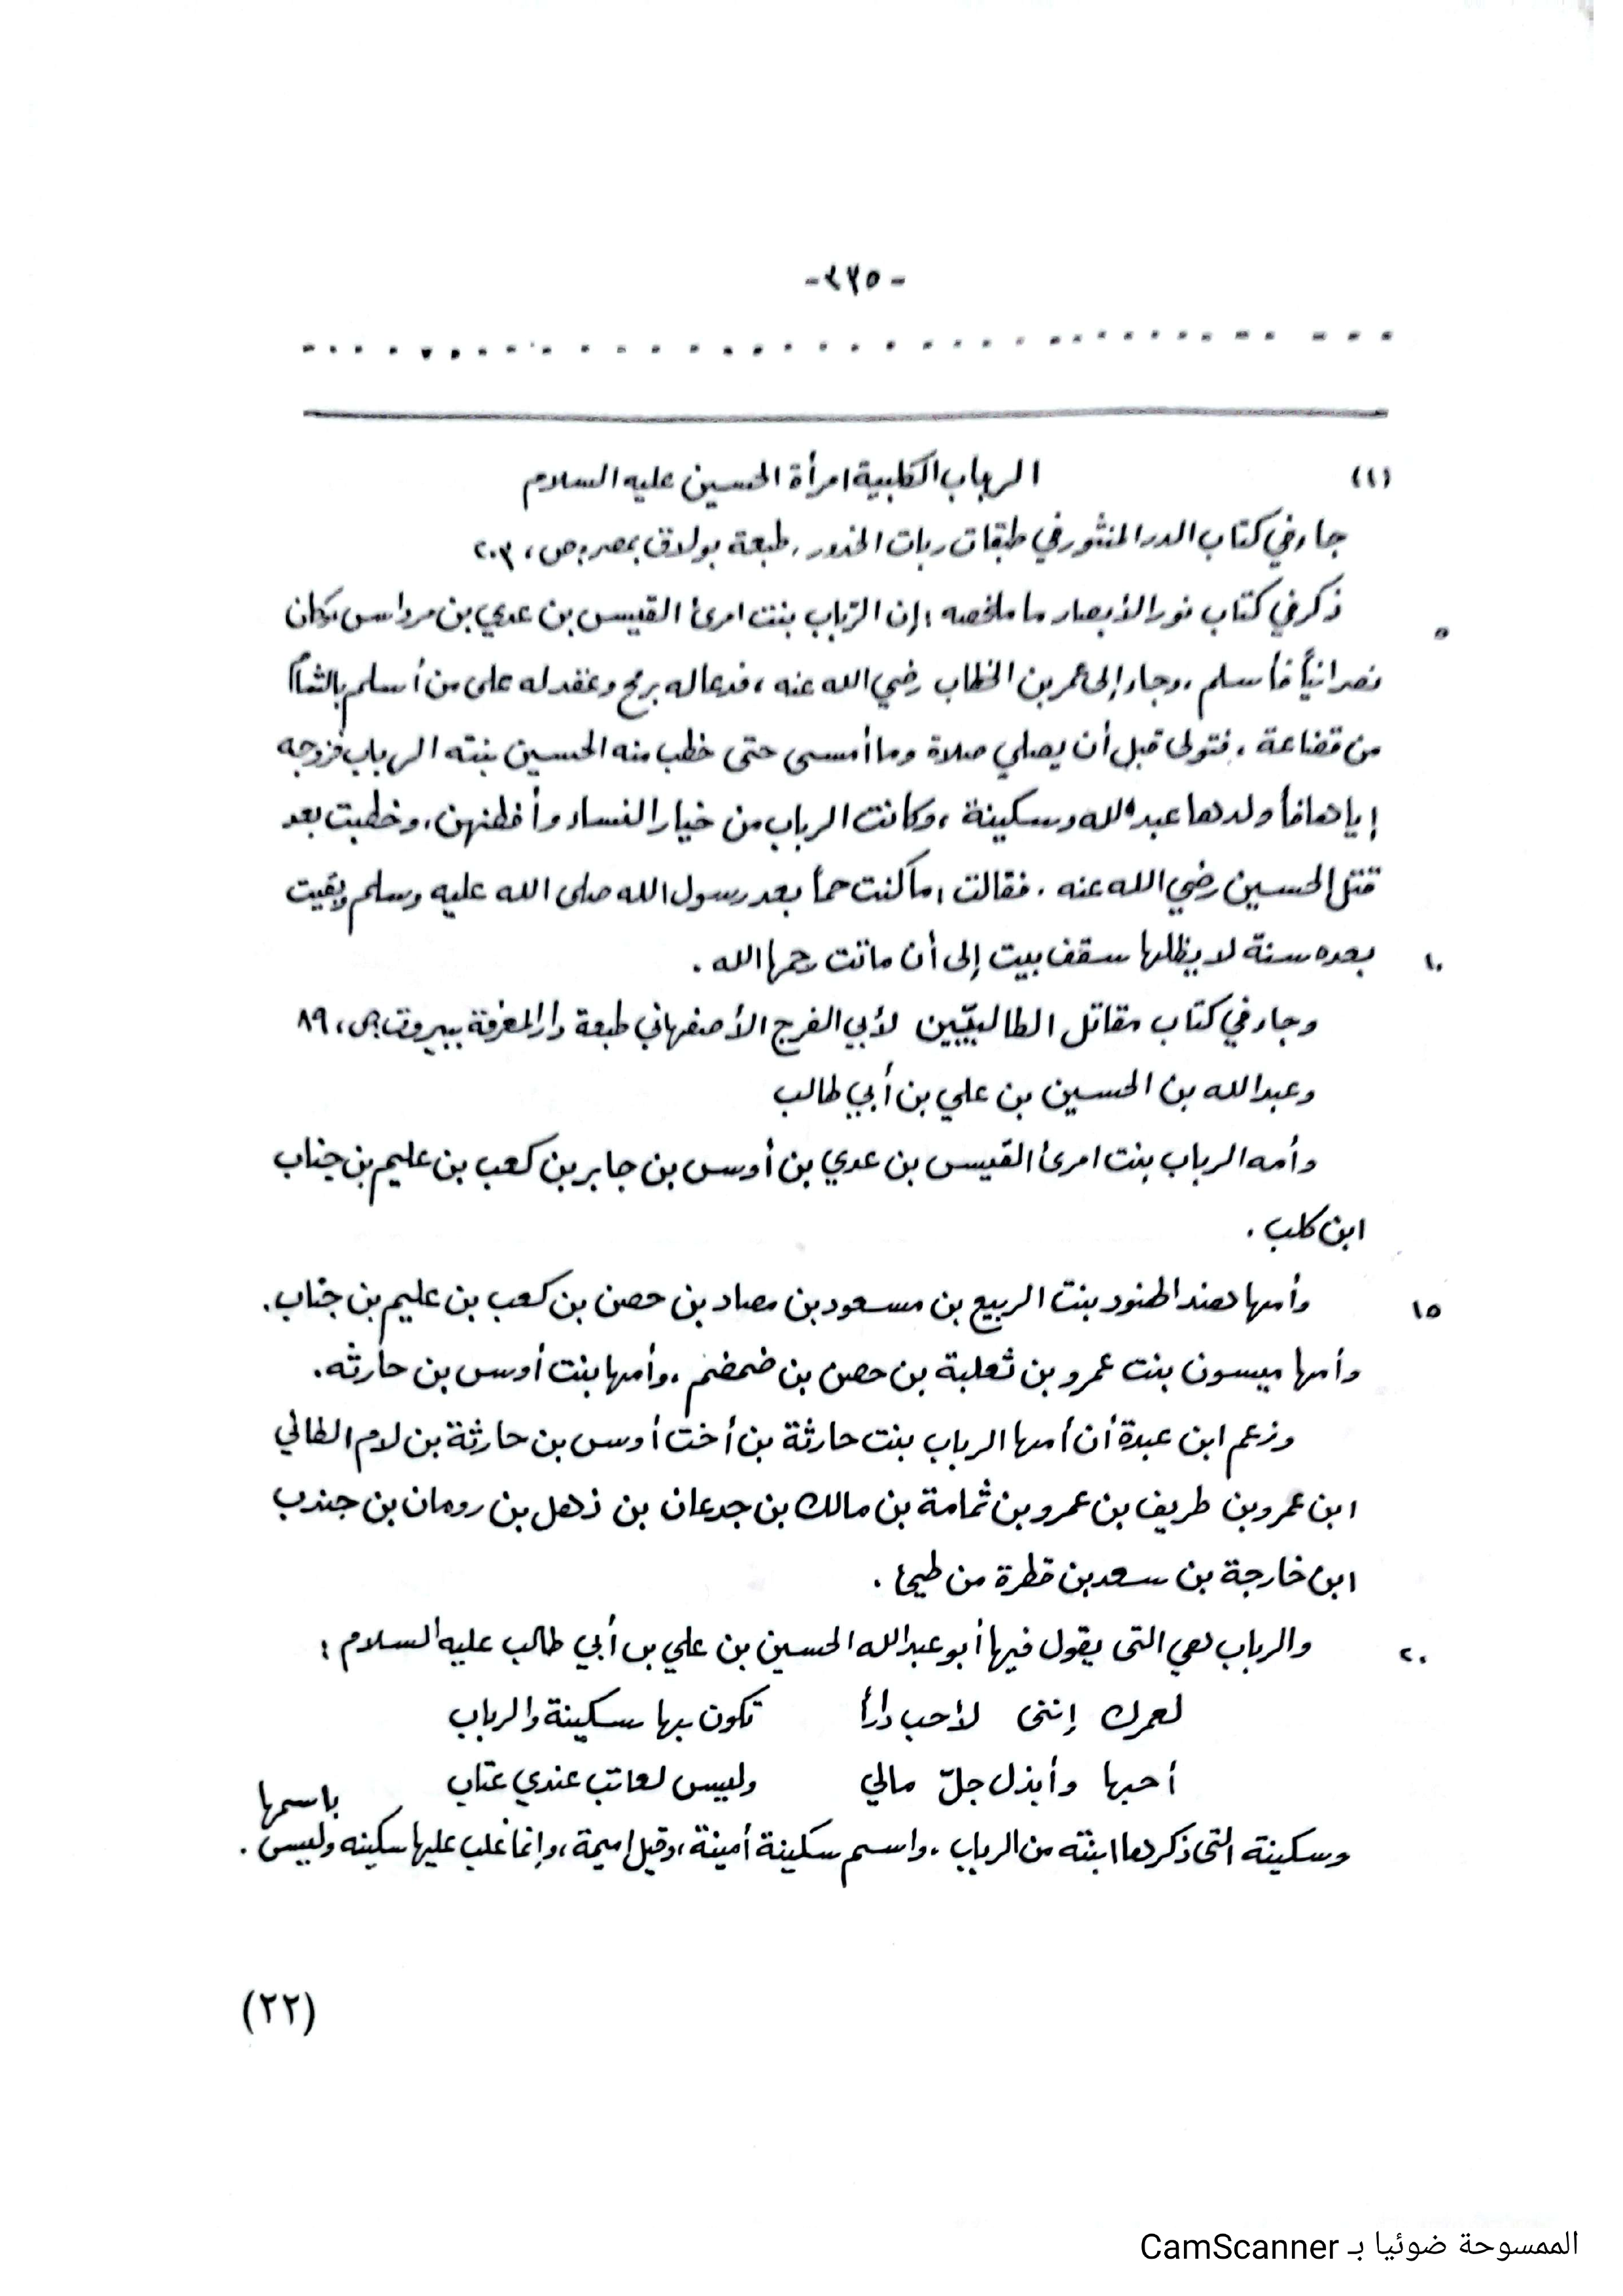 -٣٢٥-
(١) الرباب الكلبية امرأة الحسين عليه السلام
جاء في كتاب الدر المنثور في طبقات ربات الخدور، طبعة بولاق بمصر، ص، ٢٠٣
ذكر في كتاب نور الأبصار ما ملخصه: إن الرّباب بنت امرئ القيس بن عدي بن مرداس، وكان
٥
نصرانيّاً فأسلم، وجاء إلى عمر بن الخطاب رضي الله عنه، فدعا له برمح وعقد له على من أسلم بالشام
من قضاعة، فتولى قبل أن يصلي صلاة وما أمسى حتى خطب منه الحسين بنته الرباب فزوجه
إياها فأولدها عبد الله وسكينة، وكانت الرباب من خيار النساء وأفطنهن، وخطبت بعد
قتل الحسين رضي الله عنه. فقالت، ما كنت حمأ بعد رسول الله صلى الله عليه وسلم وبقيت
١٠ بعده سنة لا يظلها سقف بيت إلى أن ماتت رحمها الله.
وجاء في كتاب مقاتل الطالبيّين لأبي الفرج الأصفهاني طبعة دار المعرفة ببيروت، ص، ٨٩
وعبد الله بن الحسين بن علي بن أبي طالب
وأمه الرباب بنت امرئ القيس بن عدي بن أوس بن جابر بن كعب بن عليم بن جناب
ابن كلب.
١٥ وأمها هند الهنود بنت الربيع بن مسعود بن مصاد بن حصن بن كعب بن عليم بن جناب.
وأمها ميسون بنت عمرو بن ثعلبة بن حصن بن ضمضم، وأمها بنت أوس بن حارثه.
وزعم ابن عبدة أن أمها الرباب بنت حارثة بن أخت أوس بن حارثة بن لام الطائي
ابن عمرو بن طريف بن عمرو بن ثمامة بن مالك بن جدعان بن ذهل بن رومان بن جندب
ابن خارجة بن سعد بن قطرة من طيئ.
٢٠ والرباب هي التى يقول فيها أبو عبد الله الحسين بن علي بن أبي طالب عليه السلام:
لعمرك إننى لأحب دارأ تكون بها سكينة والرباب
أحبها وأبذل جلّ مالي وليس لعاتب عندي عتاب
وسكينة التى ذكرها ابنته من الرباب، واسم سكينة أمينة، وقيل اميمة، وإنما غلب عليها سكينه وليس باسمها.
(٢٢)
الممسوحة ضوئيا بـ CamScanner